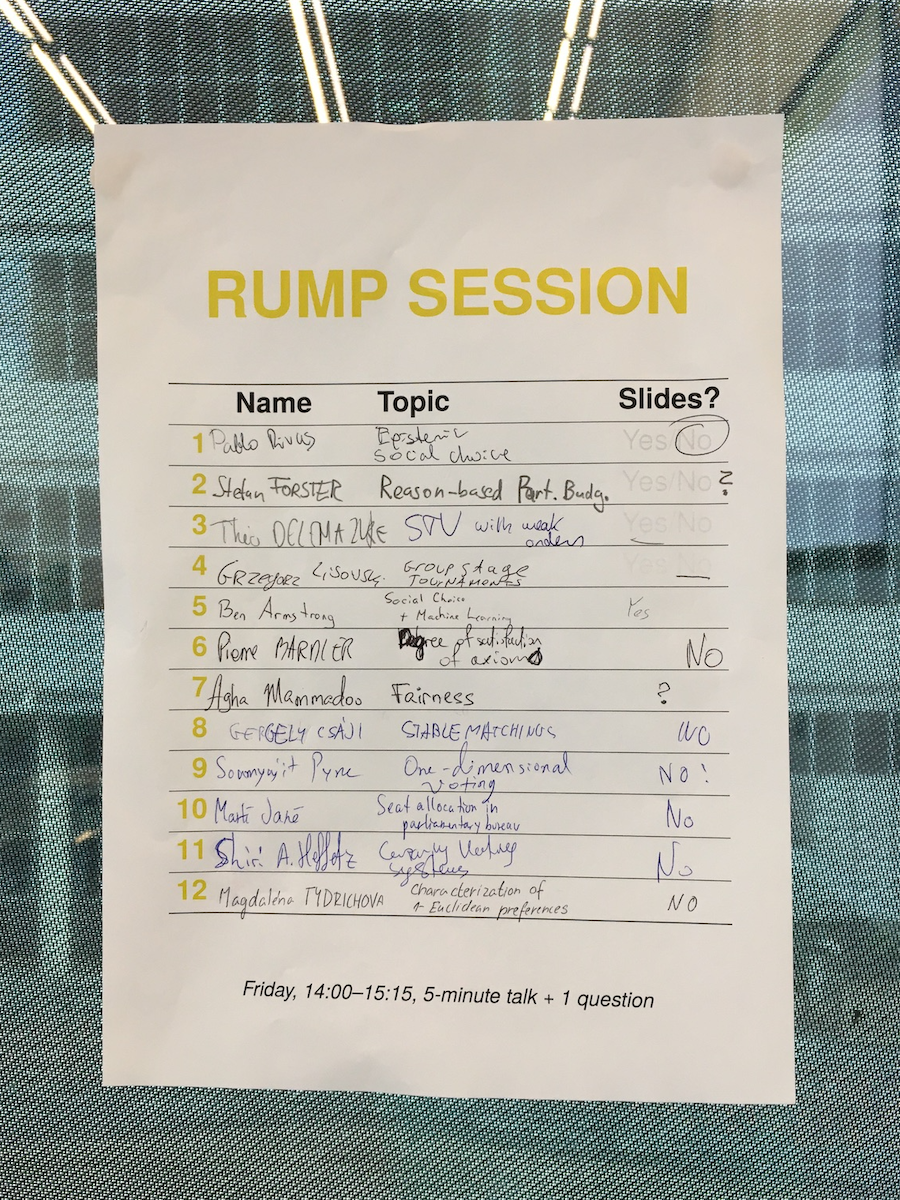 RUMP SESSION
Name Topic Slides?
1 Pablo Rivus Epistemic Yes/No
social choice
2 Stefan FORSTER Reason-based Part. Budg. Yes/No ?
3 Théo DELEMAZURE STV with weak Yes/No
orders
4 Grzegorz Lisowski GROUP STAGE Yes/No
TOURNAMENTS
5 Ben Armstrong Social Choice Yes
+ Machine Learning
6 Pierre BARDIER Degree of satisfaction NO
of axioms
7 Agha Mammadov Fairness ?
8 GERGELY CSÁJI STABLE MATCHINGS NO
9 Soumyajit Pyne One-dimensional NO!
voting
10 Martí Jané Seat allocation in No
parliamentary bureau
11 Shiri A. Heffetz Voting No
systems
12 Magdaléna TYDRICHOVA Characterization of NO
Euclidean preferences
Friday, 14:00–15:15, 5-minute talk + 1 question